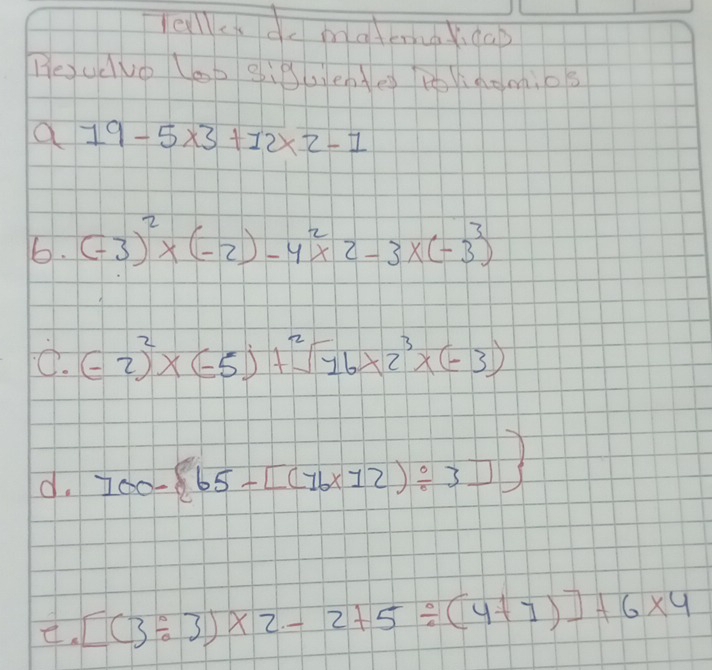 Taller de matematicas
Resuelvo los siguientes Polinomios
a 19-5x3+12x2-1
b. (-3)²x(-2)-4²x2-3x(-3³)
c. (-2)²x(-5)+²√16x2³x(-3)
d. 100-{65-[(16x12)÷3]}
e. [(3÷3)x2-2+5÷(4+1)]+6x4